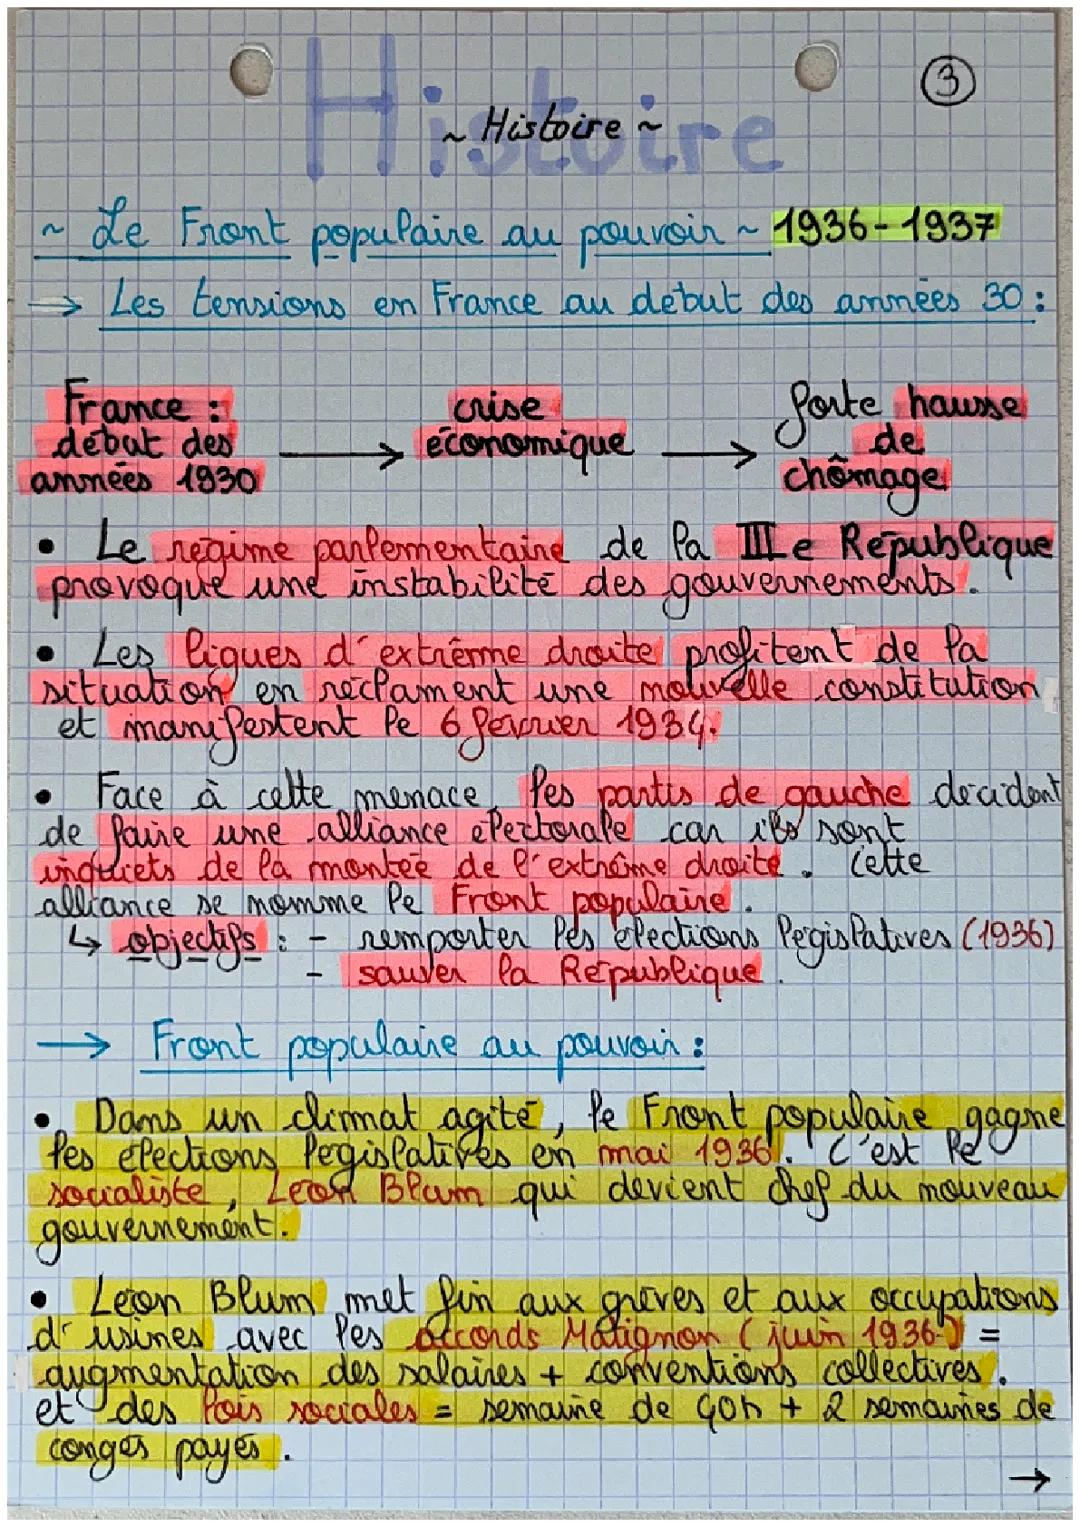 Histoire
3
~ Histoire ~
~ Le Front populaire au pouvoir ~ 1936-1937
→ Les tensions en France au début des années 30 :
France :
début des
années 1930
→
crise
économique
→
forte hausse
de
chômage
• Le régime parlementaire de la IIIe République
provoque une instabilité des gouvernements.
• Les ligues d'extrême droite profitent de la
situation en réclament une nouvelle constitution
et manifestent le 6 février 1934.
• Face à cette menace, les partis de gauche décident
de faire une alliance électorale car ils sont
inquiets de la montée de l'extrême droite. Cette
alliance se nomme le Front populaire.
↳ objectifs : - remporter les élections législatives (1936)
- sauver la République.
→ Front populaire au pouvoir :
• Dans un climat agité, le Front populaire gagne
les élections législatives en mai 1936. C'est le
socialiste, Léon Blum qui devient chef du nouveau
gouvernement.
• Léon Blum met fin aux grèves et aux occupations
d'usines avec les accords Matignon (juin 1936) =
augmentation des salaires + conventions collectives.
et des lois sociales = semaine de 40h + 2 semaines de
congés payés.
→